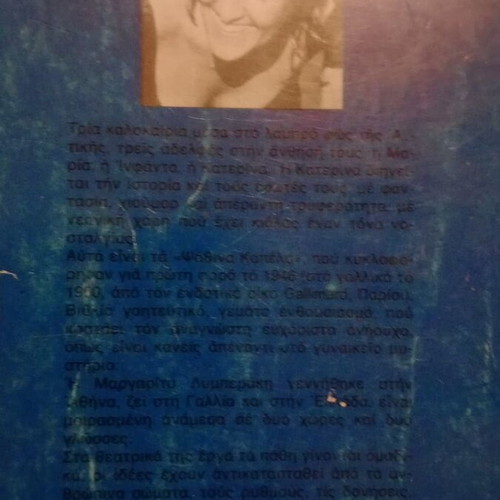 Τρία καλοκαίρια μέσα στό λαμπρό φῶς τῆς Ἀτ-
τικῆς, τρεῖς ἀδελφές στήν ἄνθησή τους: ἡ Μα-
ρία, ἡ Ἰνφάντα, ἡ Κατερίνα. Ἡ Κατερίνα διηγεῖ-
ται τήν ἱστορία καί τούς ἔρωτές τους, μέ φαν-
τασία, χιοῦμορ καί ἀπέραντη τρυφερότητα, μέ
νεανική χάρη πού ἔχει κιόλας ἕναν τόνο νο-
σταλγίας.
Αὐτά εἶναι τά «Ψάθινα Καπέλα», πού κυκλοφό-
ρησαν γιά πρώτη φορά τό 1946 (στά γαλλικά τό
1950, ἀπό τόν ἐκδοτικό οἶκο Gallimard, Παρίσι).
Βιβλίο γοητευτικό, γεμάτο ἐνθουσιασμό, πού
τόν ἀναγνώστη εὐχάριστα ἀνήσυχο,
ὅπως εἶναι κανείς ἀπέναντι στό γυναικεῖο μυ-
στήριο.
Ἡ Μαργαρίτα Λυμπεράκη γεννήθηκε στήν
Ἀθήνα, ζεῖ στή Γαλλία καί στήν Ἑλλάδα, εἶναι
μοιρασμένη ἀνάμεσα σέ δυό χῶρες καί δυό
γλῶσσες.
Στά θεατρικά της ἔργα τά πάθη γίνονται
οἱ ἰδέες ἔχουν ἀντικατασταθεῖ ἀπό τά ἀν-
θρώπινα σώματα, τούς ρυθμούς, τίς δονήσεις